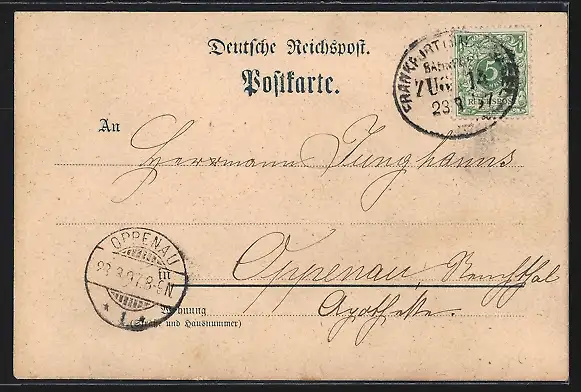 Deutsche Reichspost.
Postkarte.
FRANKFURT
BAHNPOST
ZUG
23.8.97
5
REICHSPOST
An
Hermann Junghanns
OPPENAU
23.8.97.8-9N
* 1. *
Oppenau, Renchthal
Apotheke.
Wohnung
(Straße und Hausnummer)